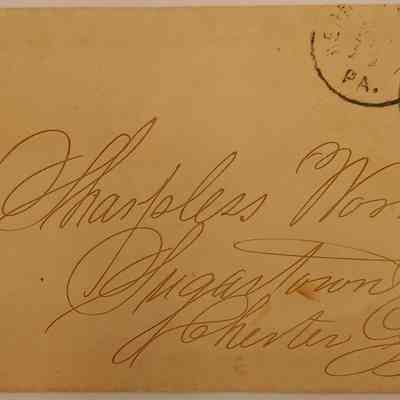 PA.
Sharpless Wor
Sugartown
Chester Co